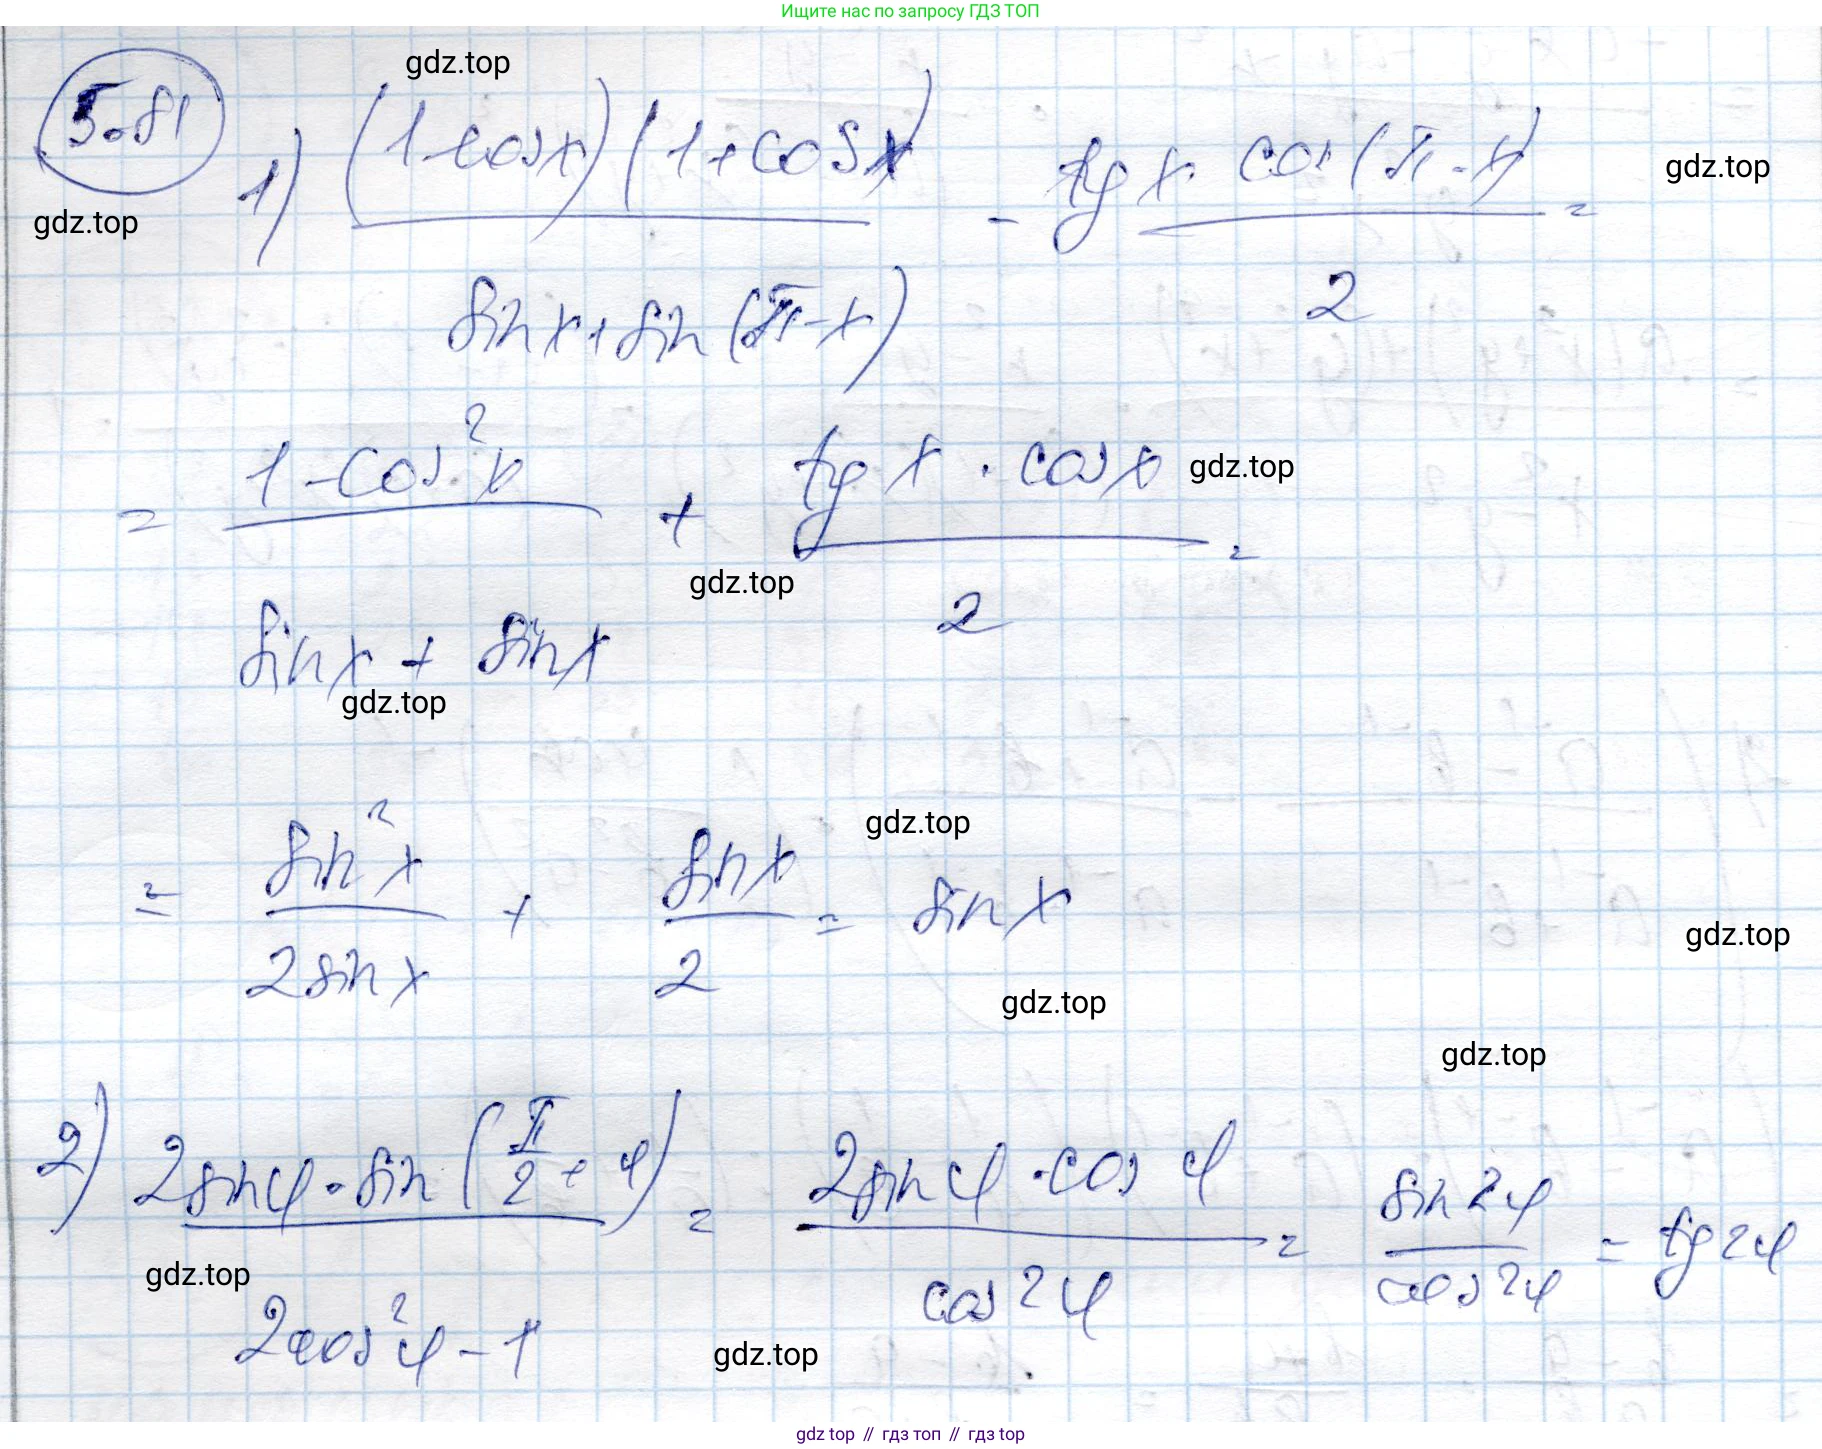 Ищите нас по запросу ГДЗ ТОП
gdz.top
5.81
1) (1-cosx)(1+cosx) / (sinx+sin(π-x)) - tgx·cos(π-x) / 2 =
gdz.top
gdz.top
= 1-cos²x / (sinx+sinx) + tgx·cosx / 2 =
gdz.top
gdz.top
gdz.top
= sin²x / 2sinx + sinx / 2 = sinx
gdz.top
gdz.top
gdz.top
gdz.top
2) 2sinφ·sin(π/2+φ) / (2cos²φ-1) = 2sinφ·cosφ / cos2φ = sin2φ / cos2φ = tg2φ
gdz.top
gdz.top
gdz top // гдз топ // гдз top